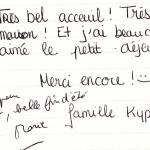 Très bel acceuil ! Très
maison ! Et j'ai beauc
aimé le petit-déjeu
Merci encore ! :)
belle fin d'été
famille Kyp